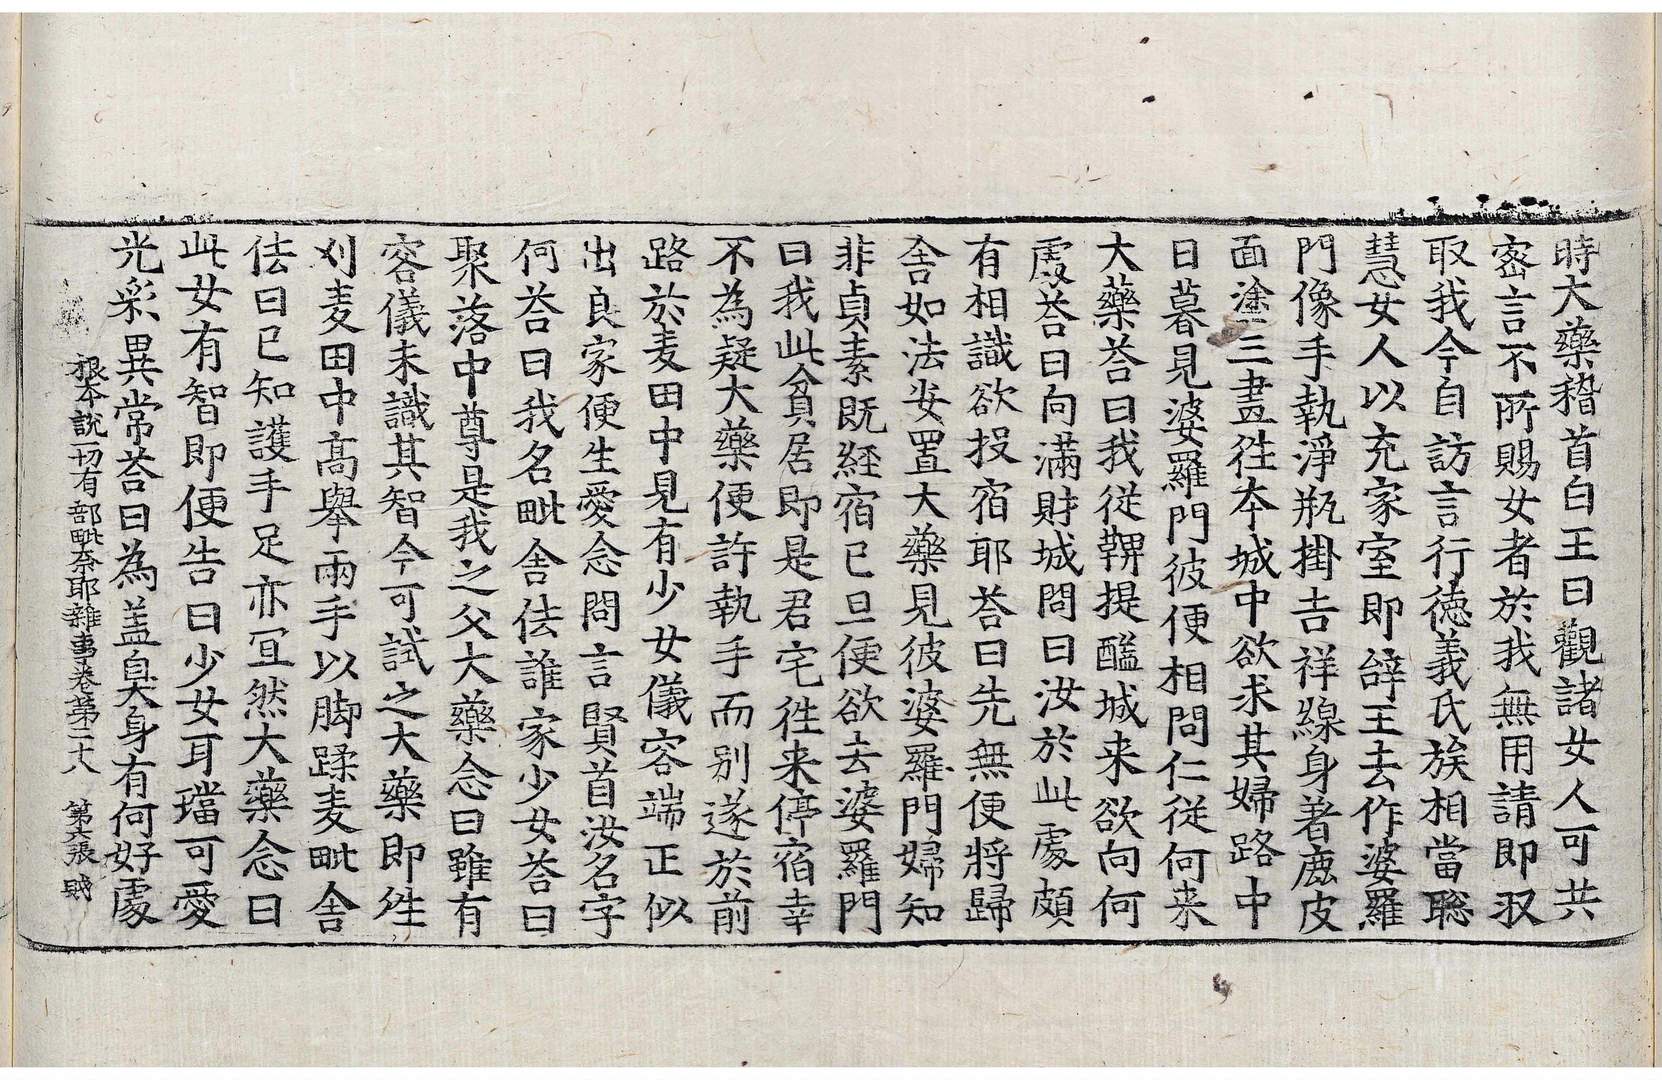 時大藥稽首白王曰觀諸女人可共
密言不所賜女者於我無用請即収
取我今自訪言行徳義氏族相當聡
慧女人以充家室即辝王去作婆羅
門像手執淨瓶掛吉祥線身著鹿皮
面塗三畫徃本城中欲求其婦路中
日暮見婆羅門彼便相問仁従何来
大藥荅曰我従鞞提醯城来欲向何
處荅曰向滿財城問曰汝於此處頗
有相識欲投宿耶荅曰先無便將歸
舎如法安置大藥見彼婆羅門婦知
非貞素既経宿已旦便欲去婆羅門
曰我此貧居即是君宅徃来停宿幸
不為疑大藥便許執手而別遂於前
路於麦田中見有少女儀容端正似
出良家便生愛念問言賢首汝名字
何荅曰我名毗舎佉誰家少女荅曰
聚落中尊是我之父大藥念曰雖有
容儀未識其智今可試之大藥即徃
刈麦田中高舉兩手以脚蹂麦毗舎
佉曰已知護手足亦冝然大藥念曰
此女有智即便告曰少女耳璫可愛
光彩異常荅曰為盖臭身有何好處
根本說一切有部毗奈耶雜事卷第二十八 第六張 賎